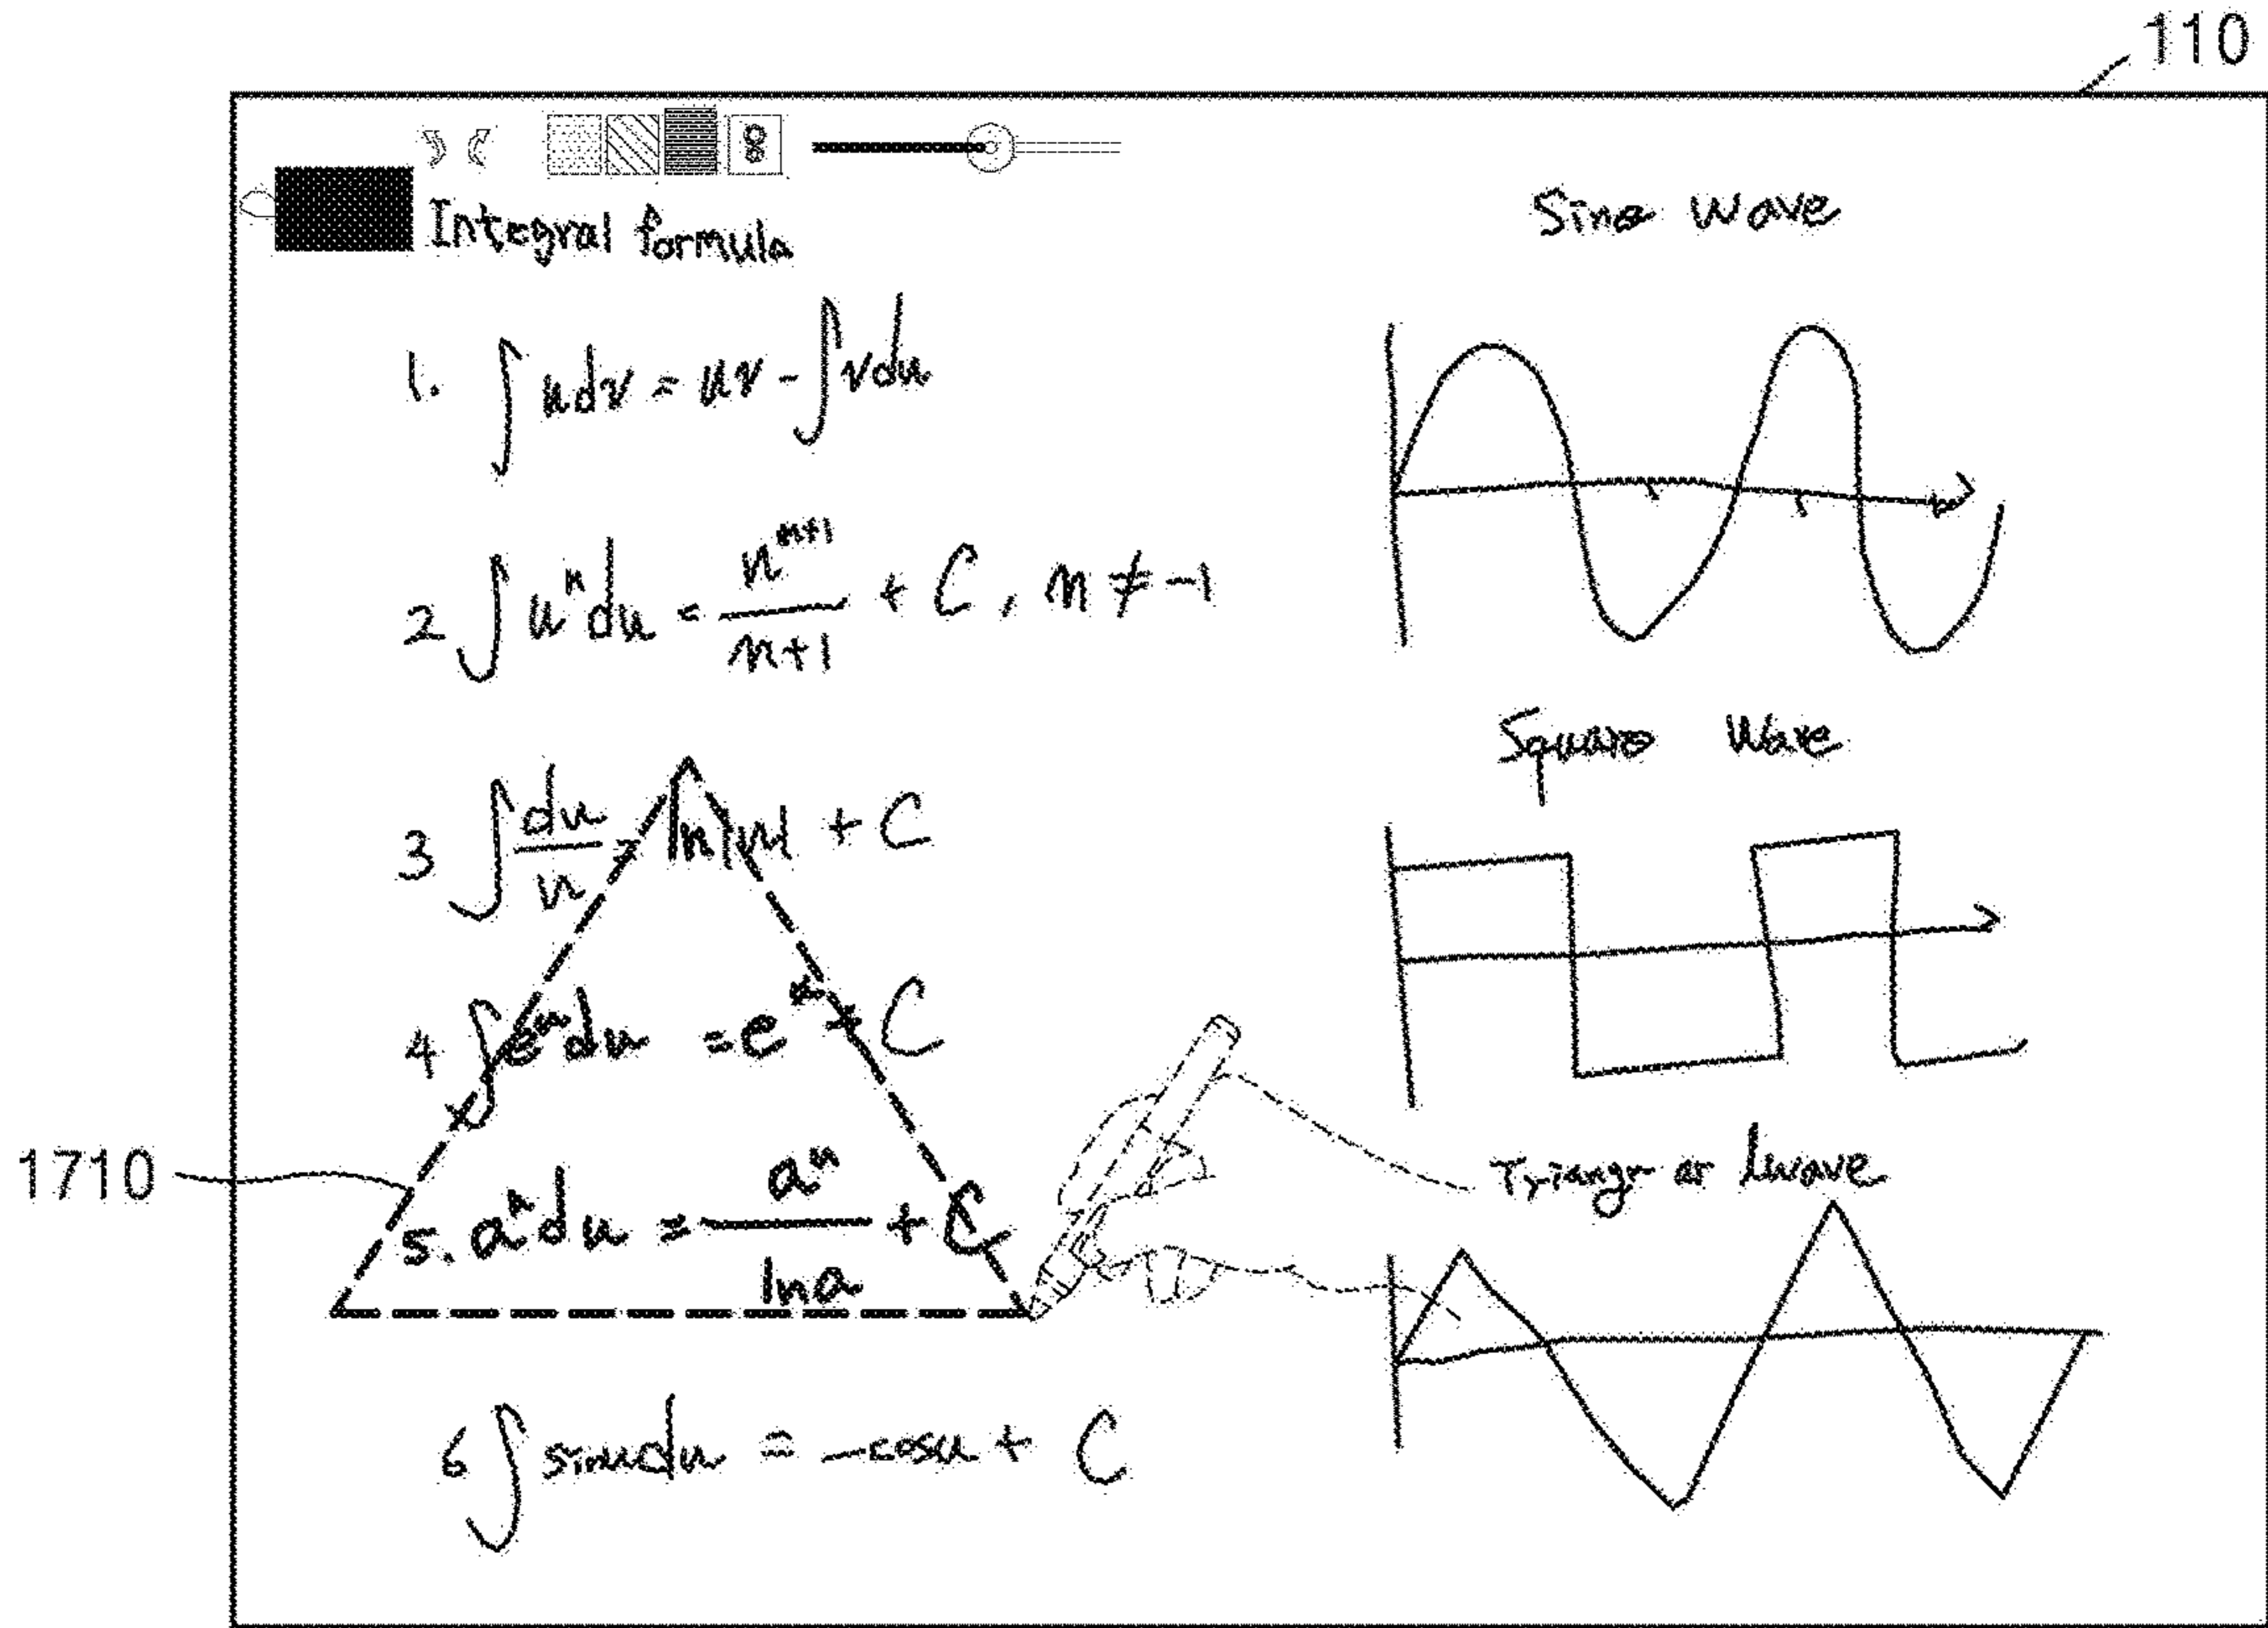 110
Integral formula
1. ∫udv = uv - ∫vdu
2 ∫uⁿdu = uⁿ⁺¹/n+1 + C, n ≠ -1
3 ∫du/u = ln|u| + C
4 ∫eᵘdu = eᵘ + C
5. aᵘdu = aᵘ/lna + C
6 ∫sinudu = -cosu + C
1710
Sine Wave
Square Wave
wave